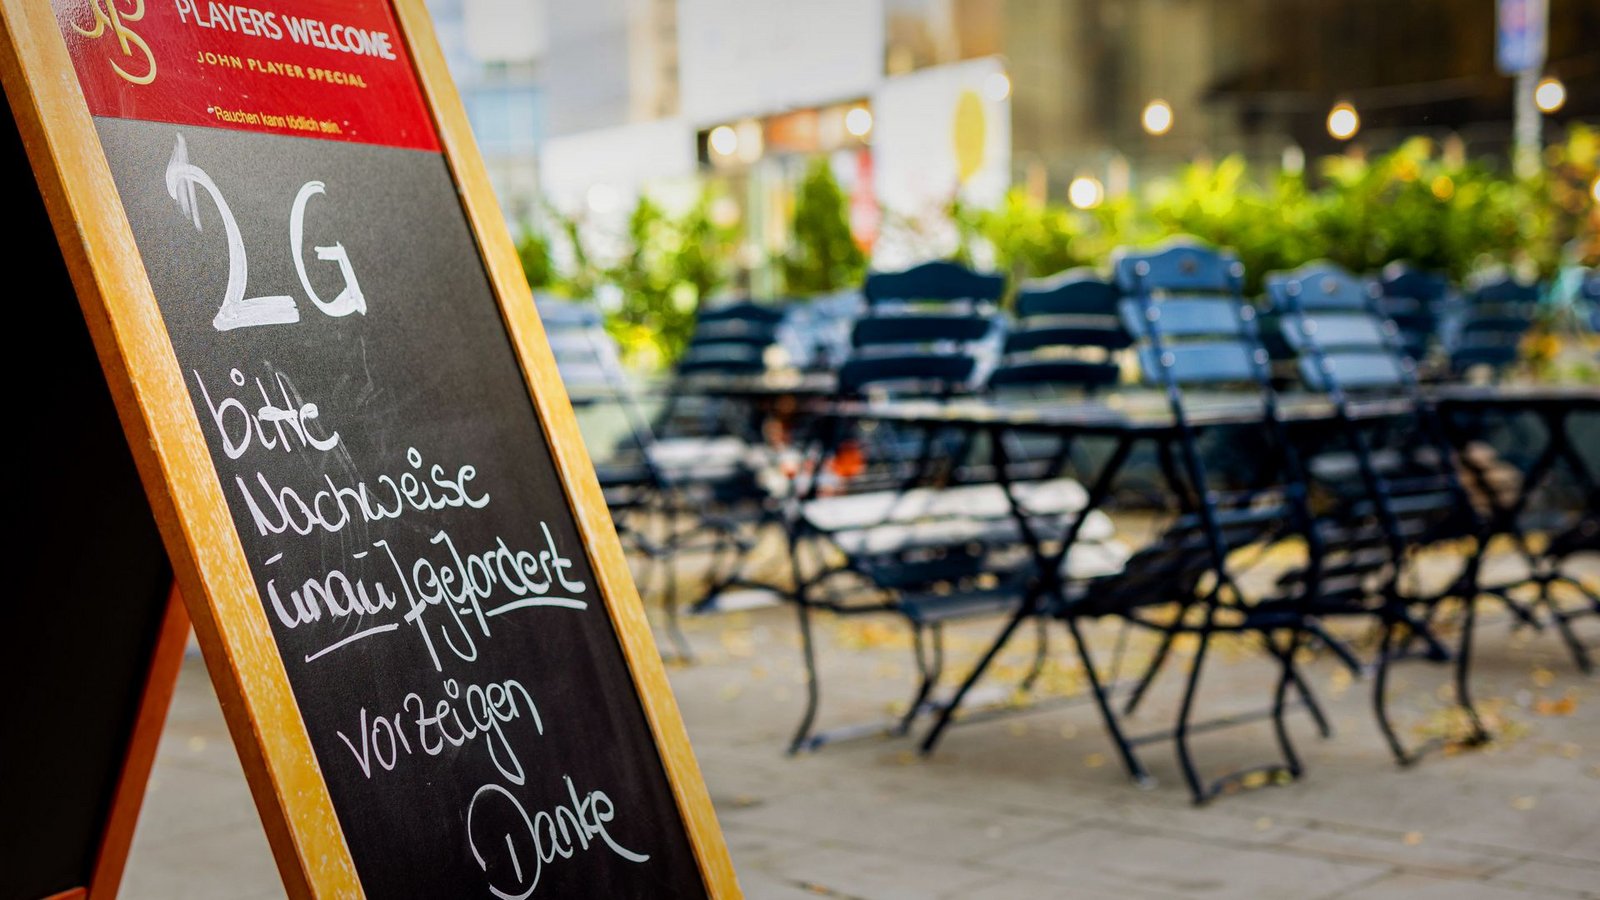 PLAYERS WELCOME
JOHN PLAYER SPECIAL
Rauchen kann tödlich sein.
2G
bitte
Nachweise
unaufgefordert
vorzeigen
Danke